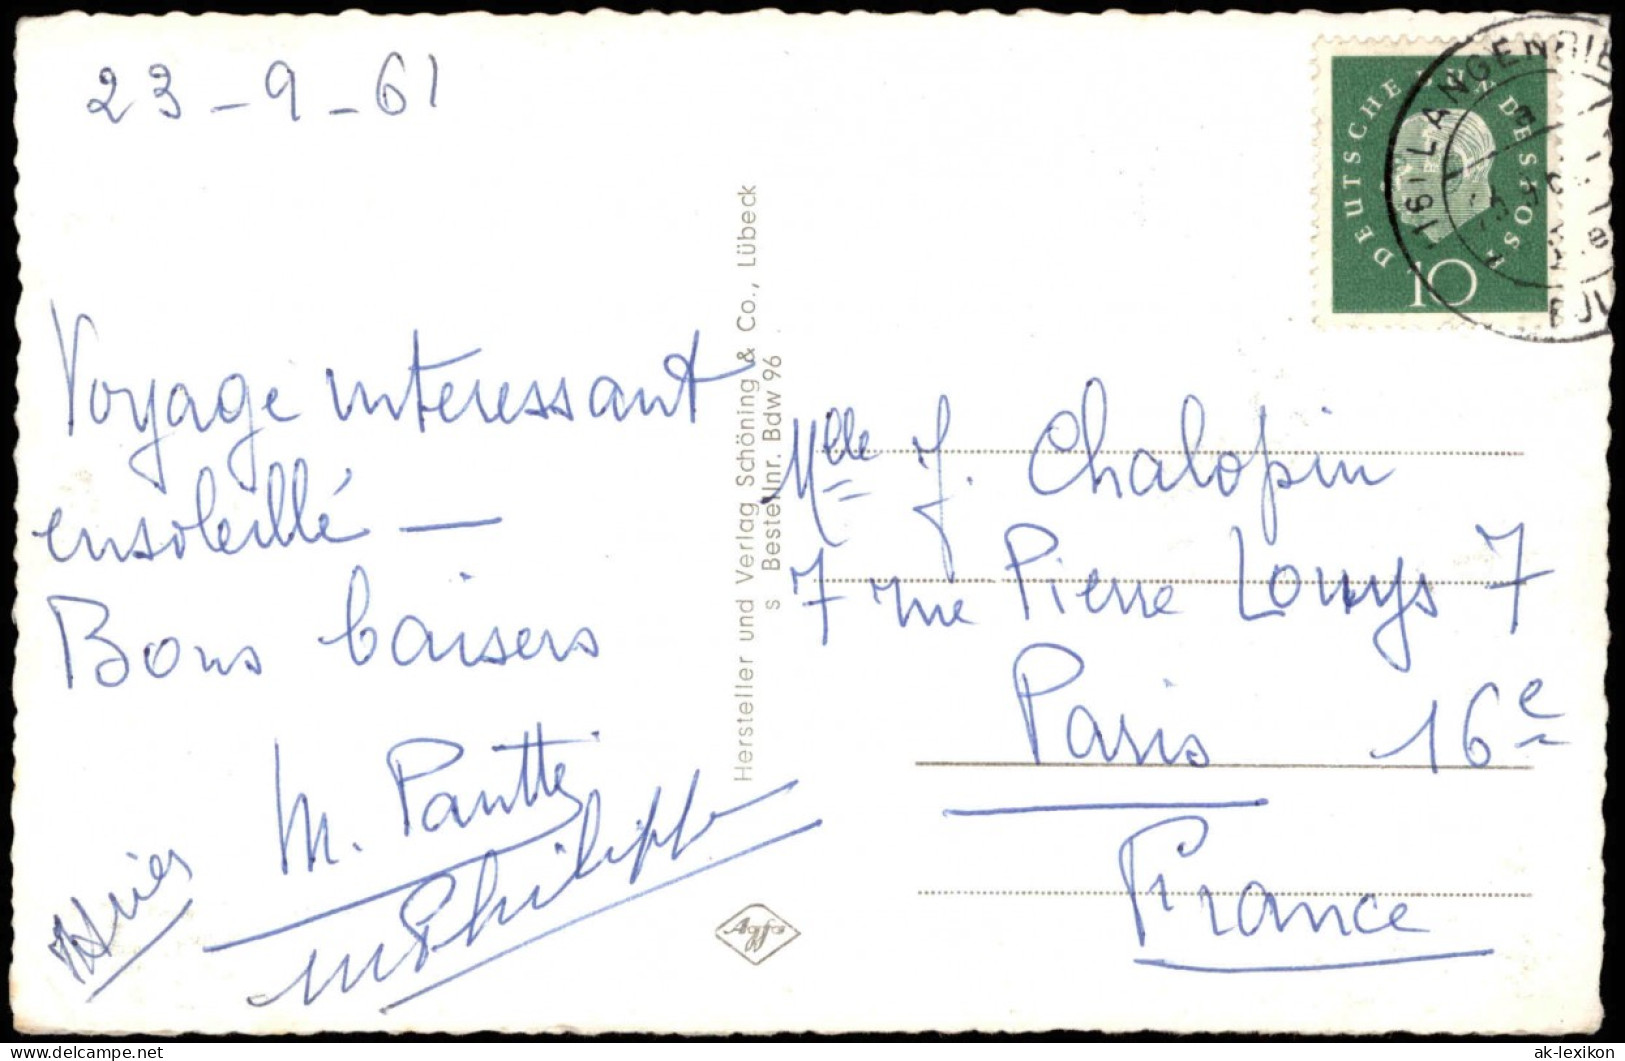 23-9-61
Voyage interessant
ensoleillé —
Bons baisers
M. Pautte
M Philippe
Hersteller und Verlag Schöning & Co., Lübeck
s Bestellnr. Bdw 96
Agfa
DEUTSCHE BUNDESPOST
10
(16) LANGENBIE
Mlle J. Chalopin
7 rue Pierre Louys 7
Paris 16e
France
ak-lexikon